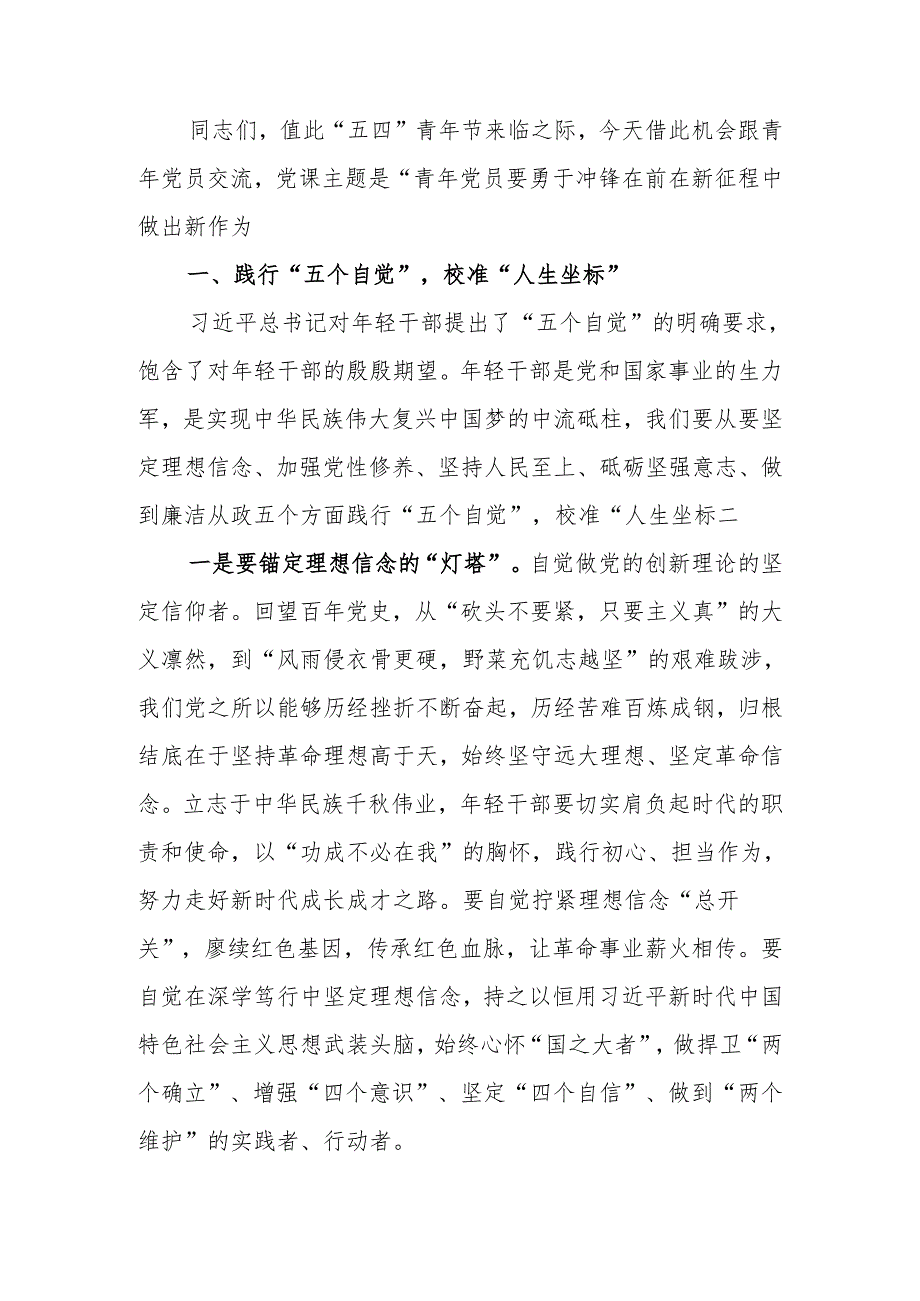 同志们，值此“五四”青年节来临之际，今天借此机会跟青
年党员交流，党课主题是“青年党员要勇于冲锋在前在新征程中
做出新作为
一、践行“五个自觉”，校准“人生坐标”
习近平总书记对年轻干部提出了“五个自觉”的明确要求，
饱含了对年轻干部的殷殷期望。年轻干部是党和国家事业的生力
军，是实现中华民族伟大复兴中国梦的中流砥柱，我们要从要坚
定理想信念、加强党性修养、坚持人民至上、砥砺坚强意志、做
到廉洁从政五个方面践行“五个自觉”，校准“人生坐标二
一是要锚定理想信念的“灯塔”。自觉做党的创新理论的坚
定信仰者。回望百年党史，从“砍头不要紧，只要主义真”的大
义凛然，到“风雨侵衣骨更硬，野菜充饥志越坚”的艰难跋涉，
我们党之所以能够历经挫折不断奋起，历经苦难百炼成钢，归根
结底在于坚持革命理想高于天，始终坚守远大理想、坚定革命信
念。立志于中华民族千秋伟业，年轻干部要切实肩负起时代的职
责和使命，以“功成不必在我”的胸怀，践行初心、担当作为，
努力走好新时代成长成才之路。要自觉拧紧理想信念“总开
关”，廖续红色基因，传承红色血脉，让革命事业薪火相传。要
自觉在深学笃行中坚定理想信念，持之以恒用习近平新时代中国
特色社会主义思想武装头脑，始终心怀“国之大者”，做捍卫“两
个确立”、增强“四个意识”、坚定“四个自信”、做到“两个
维护”的实践者、行动者。